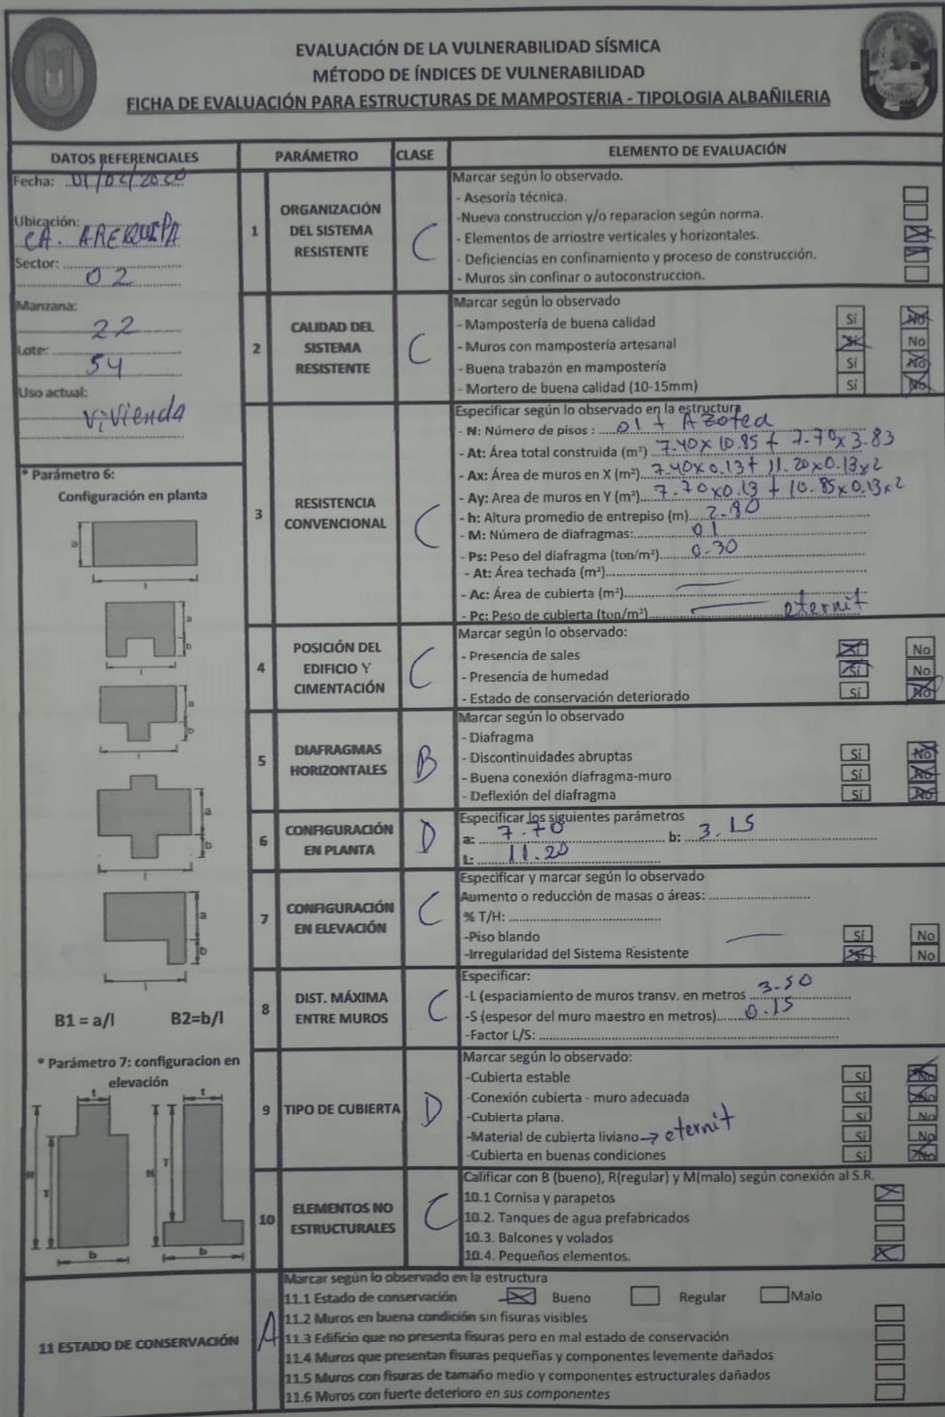 EVALUACIÓN DE LA VULNERABILIDAD SÍSMICA
MÉTODO DE ÍNDICES DE VULNERABILIDAD
FICHA DE EVALUACIÓN PARA ESTRUCTURAS DE MAMPOSTERIA - TIPOLOGIA ALBAÑILERIA
DATOS REFERENCIALES
Fecha:
Ubicación:
CA. AREQUIPA
Sector:
02
Manzana:
22
Lote:
54
Uso actual:
vivienda
* Parámetro 6:
Configuración en planta
a
l
a
b
l
a
b
l
a
b
l
a
b
l
B1 = a/l B2=b/l
* Parámetro 7: configuracion en
elevación
t
H
T
b
t
H
T
b
PARÁMETRO CLASE ELEMENTO DE EVALUACIÓN
1 ORGANIZACIÓN DEL SISTEMA RESISTENTE C
Marcar según lo observado.
- Asesoría técnica.
-Nueva construccion y/o reparacion según norma.
- Elementos de arriostre verticales y horizontales.
- Deficiencias en confinamiento y proceso de construcción.
- Muros sin confinar o autoconstruccion.
2 CALIDAD DEL SISTEMA RESISTENTE C
Marcar según lo observado
- Mampostería de buena calidad Sí No
- Muros con mampostería artesanal Sí No
- Buena trabazón en mampostería Sí No
- Mortero de buena calidad (10-15mm) Sí No
3 RESISTENCIA CONVENCIONAL C
Especificar según lo observado en la estructura
- N: Número de pisos : 01 + Azotea
- At: Área total construida (m²) 7.40 x 10.85 + 7.70 x 3.83
- Ax: Área de muros en X (m²). 7.40 x 0.13 + 11.20 x 0.13 x 2
- Ay: Area de muros en Y (m²). 7.70 x 0.13 + 10.85 x 0.13 x 2
- h: Altura promedio de entrepiso (m) 2.80
- M: Número de diafragmas: 01
- Ps: Peso del diafragma (ton/m²) 0.30
- At: Área techada (m²)
- Ac: Área de cubierta (m²)
- Pc: Peso de cubierta (ton/m²) eternit
4 POSICIÓN DEL EDIFICIO Y CIMENTACIÓN C
Marcar según lo observado:
- Presencia de sales Sí No
- Presencia de humedad Sí No
- Estado de conservación deteriorado Sí No
5 DIAFRAGMAS HORIZONTALES B
Marcar según lo observado
- Diafragma
- Discontinuidades abruptas Sí No
- Buena conexión diafragma-muro Sí No
- Deflexión del diafragma Sí No
6 CONFIGURACIÓN EN PLANTA D
Especificar los siguientes parámetros
a: 7.70 b: 3.15
L: 11.20
7 CONFIGURACIÓN EN ELEVACIÓN C
Especificar y marcar según lo observado
Aumento o reducción de masas o áreas:
% T/H:
-Piso blando Sí No
-Irregularidad del Sistema Resistente Sí No
8 DIST. MÁXIMA ENTRE MUROS C
Especificar:
-L (espaciamiento de muros transv. en metros 3.50
-S (espesor del muro maestro en metros) 0.15
-Factor L/S:
9 TIPO DE CUBIERTA D
Marcar según lo observado:
-Cubierta estable Sí No
-Conexión cubierta - muro adecuada Sí No
-Cubierta plana. Sí No
-Material de cubierta liviano → eternit Sí No
-Cubierta en buenas condiciones Sí No
10 ELEMENTOS NO ESTRUCTURALES C
Calificar con B (bueno), R(regular) y M(malo) según conexión al S.R.
10.1 Cornisa y parapetos
10.2. Tanques de agua prefabricados
10.3. Balcones y volados
10.4. Pequeños elementos.
11 ESTADO DE CONSERVACIÓN A
Marcar según lo observado en la estructura
11.1 Estado de conservación Bueno Regular Malo
11.2 Muros en buena condición sin fisuras visibles
11.3 Edificio que no presenta fisuras pero en mal estado de conservación
11.4 Muros que presentan fisuras pequeñas y componentes levemente dañados
11.5 Muros con fisuras de tamaño medio y componentes estructurales dañados
11.6 Muros con fuerte deterioro en sus componentes